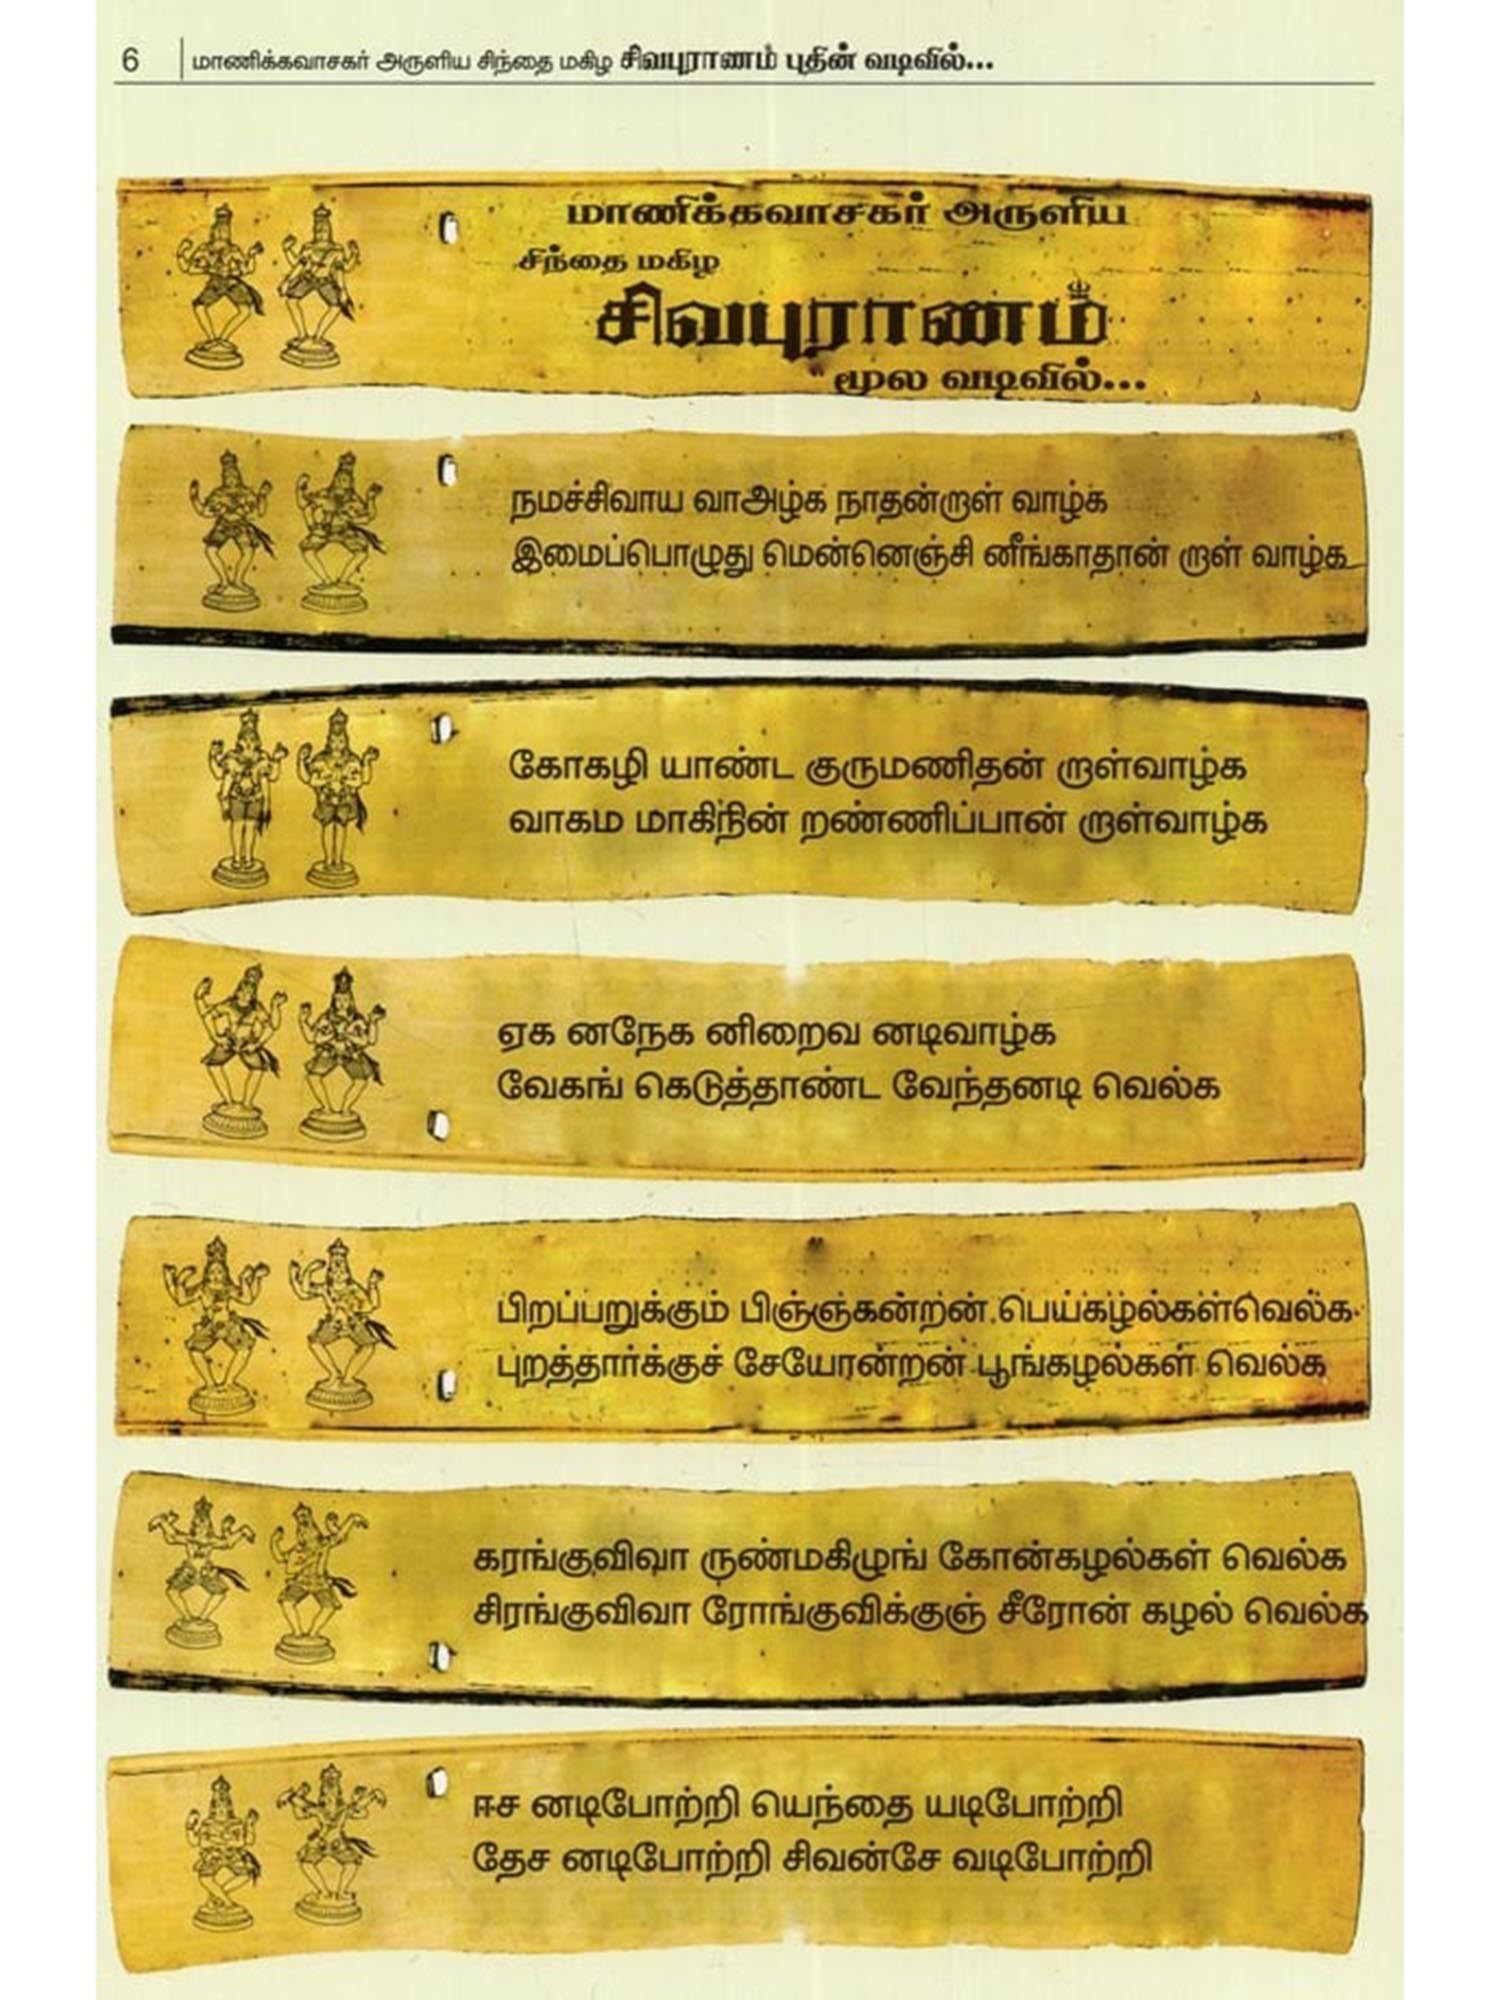 6 மாணிக்கவாசகர் அருளிய சிந்தை மகிழ சிவபுராணம் புதின் வடிவில்...
மாணிக்கவாசகர் அருளிய
சிந்தை மகிழ
சிவபுராணம்
மூல வடிவில்...
நமச்சிவாய வாஅழ்க நாதன்றாள் வாழ்க
இமைப்பொழுது மென்னெஞ்சி னீங்காதான் றாள் வாழ்க
கோகழி யாண்ட குருமணிதன் றாள்வாழ்க
வாகம மாகிநின் றண்ணிப்பான் றாள்வாழ்க
ஏக னநேக னிறைவ னடிவாழ்க
வேகங் கெடுத்தாண்ட வேந்தனடி வெல்க
பிறப்பறுக்கும் பிஞ்ஞகன்றன் பெய்கழல்கள்வெல்க
புறத்தார்க்குச் சேயோன்றன் பூங்கழல்கள் வெல்க
கரங்குவிவா ருண்மகிழுங் கோன்கழல்கள் வெல்க
சிரங்குவிவா ரோங்குவிக்குஞ் சீரோன் கழல் வெல்க
ஈச னடிபோற்றி யெந்தை யடிபோற்றி
தேச னடிபோற்றி சிவன்சே வடிபோற்றி